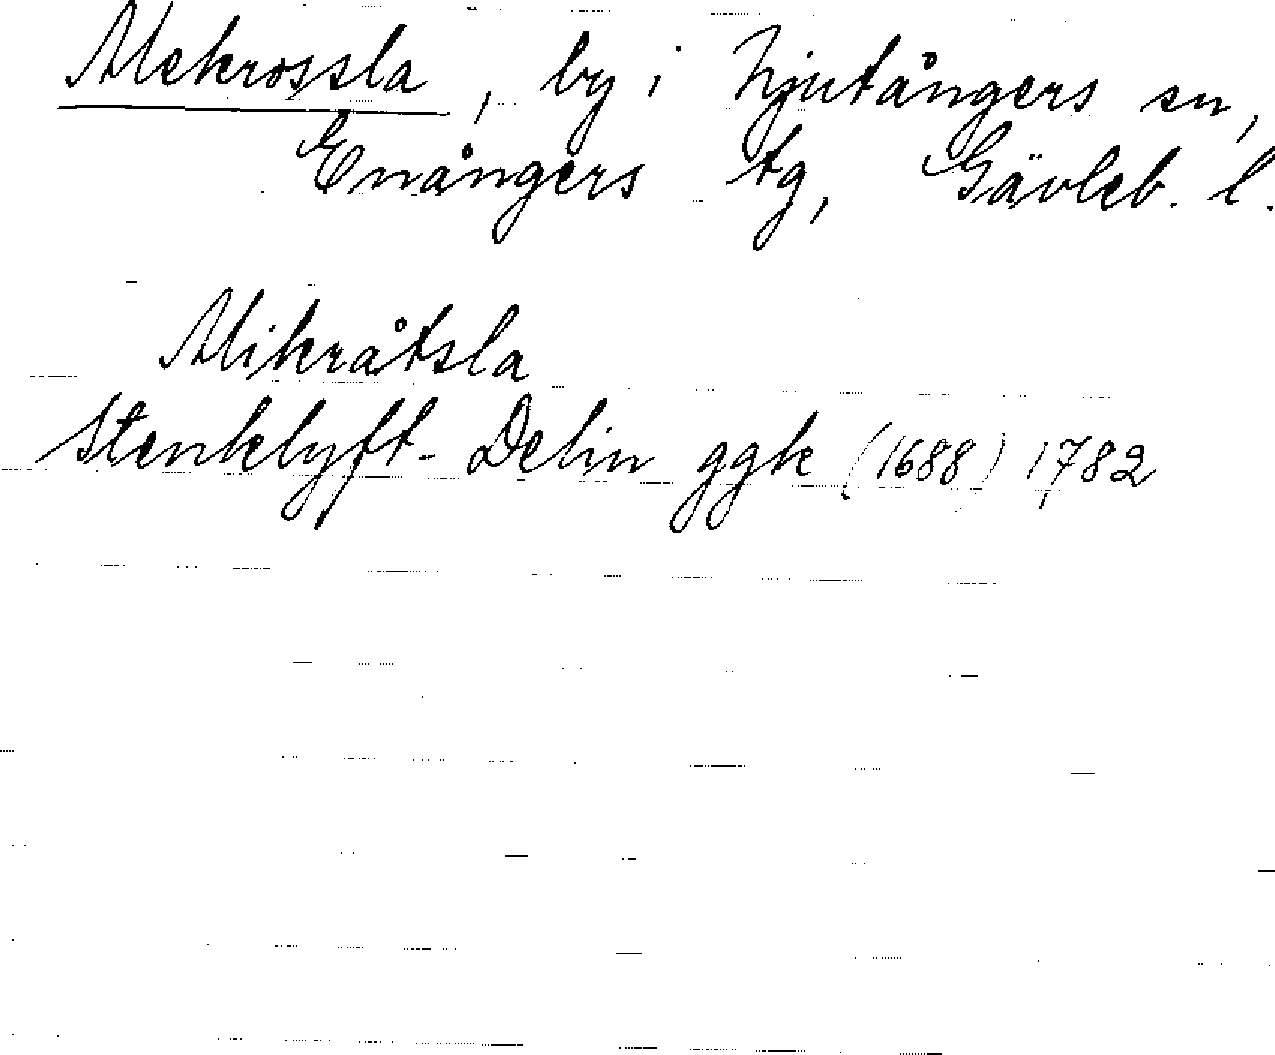 Mekrossla, by i Njutångers sn,
Enångers tg, Gävleb. l.
Mikråtsla
Stenklyft-Delin ggk (1688) 1782